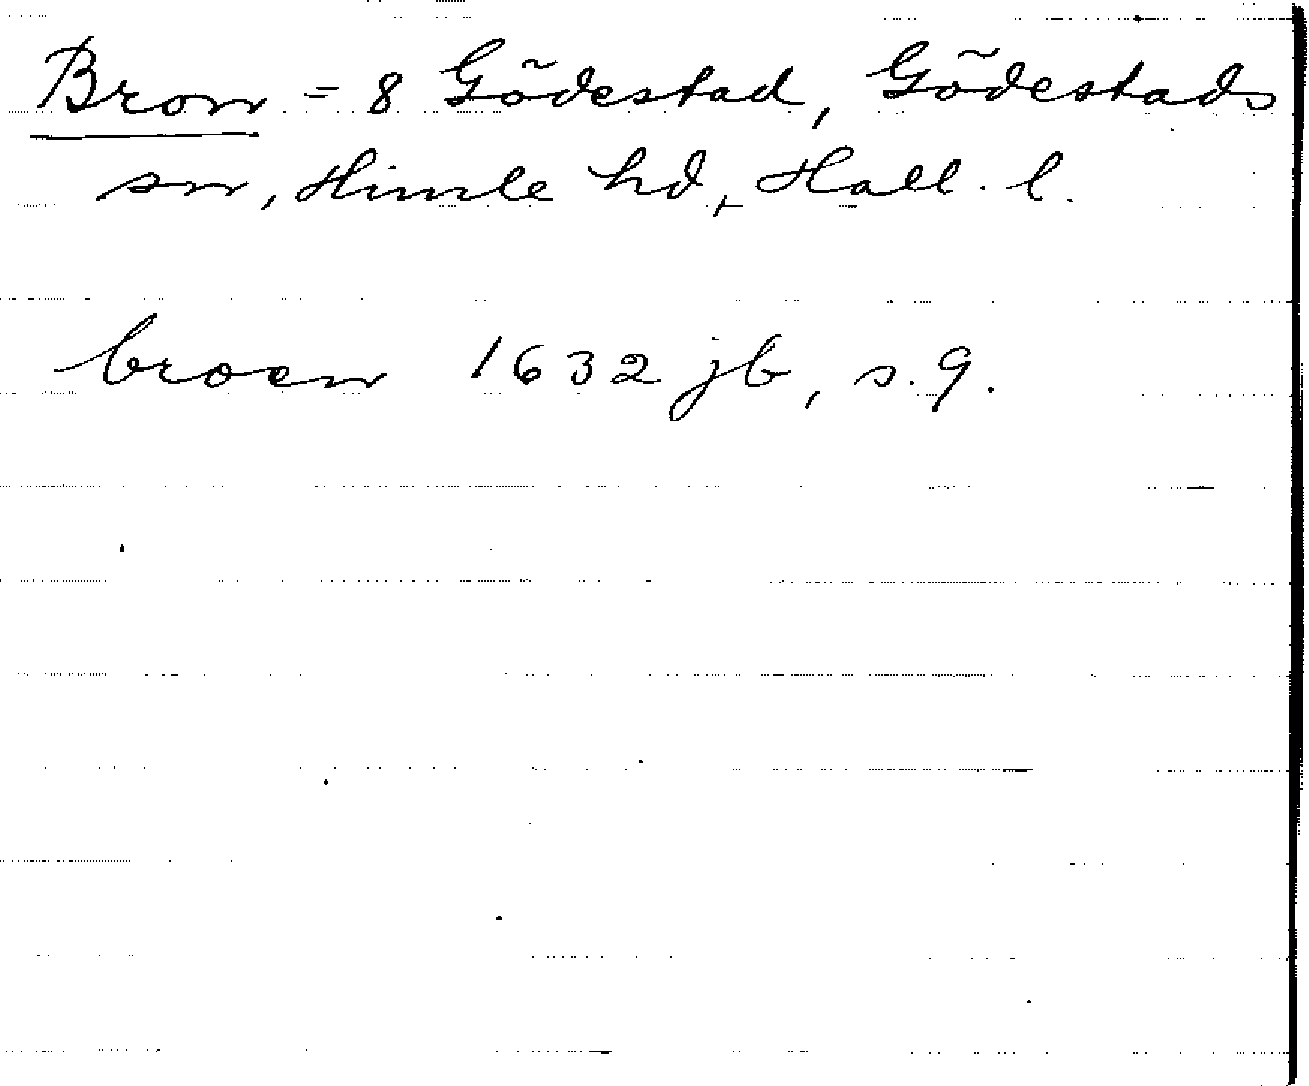 Bron = 8 Gödestad, Gödestads
sn, Himle hd, Hall. l.
broen 1632 jb, s. 9.